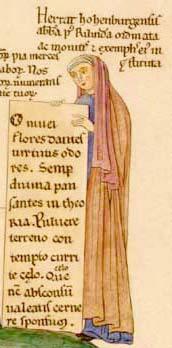 Herrat hohenburgensis
abba p9 Rilinda ordinata
ac monitis & exemplis ei in
stituta
pia mercel
abor. Nos
numerans
tue tuor
O nivei
flores dantes
virtutis odo
res. Semp
divina pau
santes in theo
ria. Pulvere
terreno con
tempto curri
te celo. Que
nc absconsu
valeatis cerne
re sponsum.